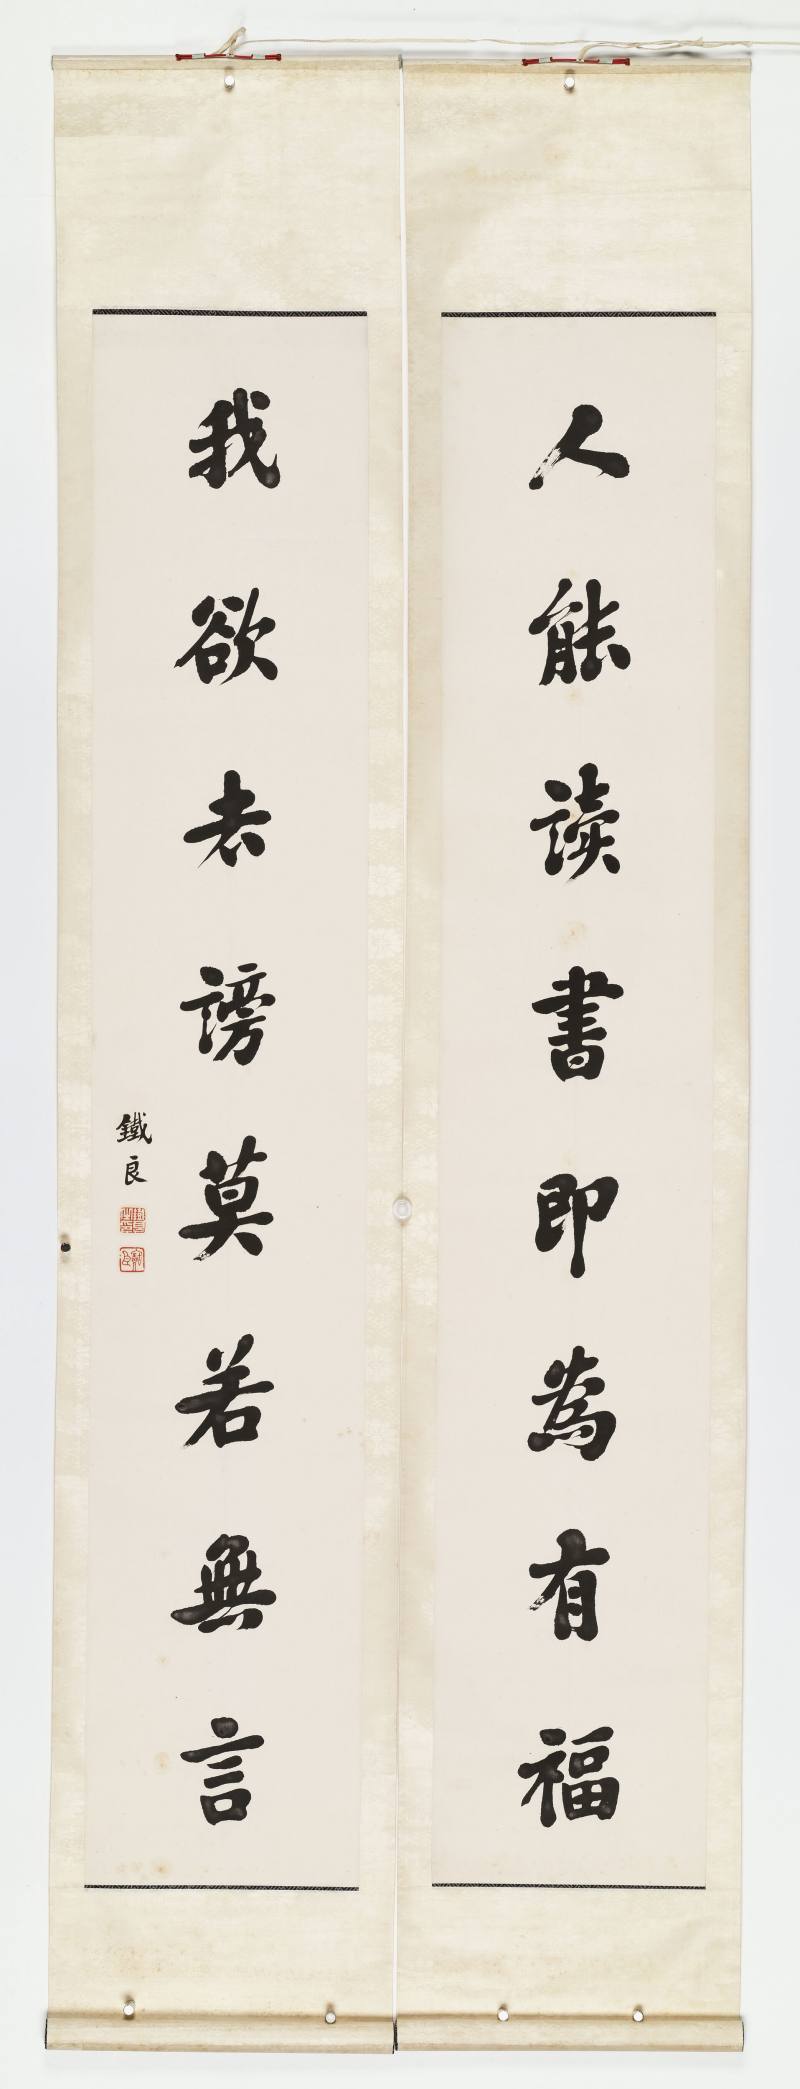 人能讀書即為有福
我欲去謗莫若無言
鐵良